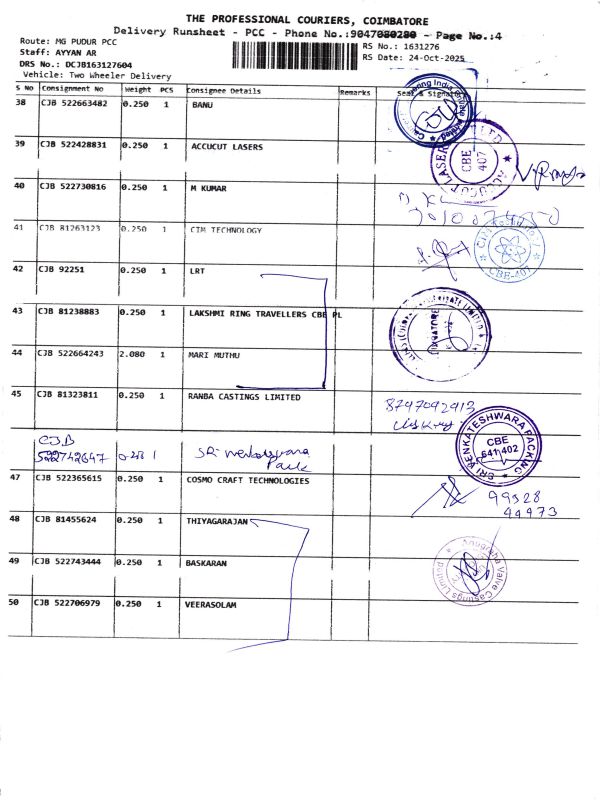 THE PROFESSIONAL COURIERS, COIMBATORE
Delivery Runsheet - PCC - Phone No.:9047080280 - Page No.:4
Route: MG PUDUR PCC
RS No.: 1631276
Staff: AYYAN AR
RS Date: 24-Oct-2025
DRS No.: DCJB163127604
Vehicle: Two Wheeler Delivery
S No Consignment No Weight PCS Consignee Details Remarks Seal & Signature
38 CJB 522663482 0.250 1 BANU
39 CJB 522428831 0.250 1 ACCUCUT LASERS
CBE 407
40 CJB 522730816 0.250 1 M KUMAR
41 CJB 81263123 0.250 1 CIM TECHNOLOGY
CBE-407
42 CJB 92251 0.250 1 LRT
43 CJB 81238883 0.250 1 LAKSHMI RING TRAVELLERS CBE PL
44 CJB 522664243 2.080 1 MARI MUTHU
45 CJB 81323811 0.250 1 RANBA CASTINGS LIMITED
8797092913
CJB
522742647 1 Sri Venkateswara
Pack
SRI VENKATESHWARA PACKING
CBE
641 402
47 CJB 522365615 0.250 1 COSMO CRAFT TECHNOLOGIES
99528
44973
48 CJB 81455624 0.250 1 THIYAGARAJAN
49 CJB 522743444 0.250 1 BASKARAN
Anugraha Valve Castings Limited
50 CJB 522706979 0.250 1 VEERASOLAM